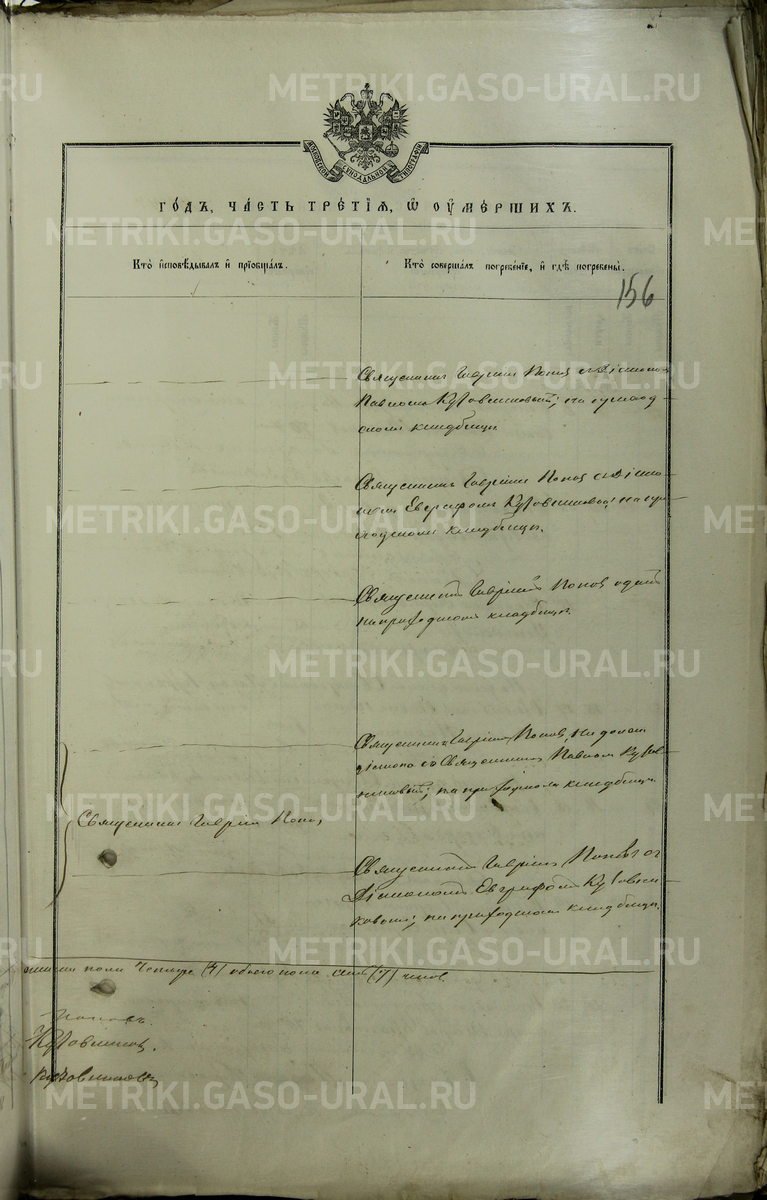 МОСКОВСКОЙ СѴНОДАЛЬНОЙ ТИПОГРАФІИ
ГО́ДЪ, ЧА́СТЬ ТРЕ́ТІѦ, Ѡ ОУ҆МЕ́РШИХЪ.
Кто̀ и҆сповѣ́дывалъ и҆ прїобща́лъ.
Кто̀ соверша́лъ погребе́нїе, и҆ гдѣ̀ погребены̀.
156
Священникъ Гавріилъ Поповъ съ Діакономъ
Павломъ Кузовниковымъ; на приход-
скомъ кладбищѣ.
Священникъ Гавріилъ Поповъ съ Діако-
номъ Евграфомъ Кузовниковымъ на при-
ходскомъ кладбищѣ.
Священникъ Гавріилъ Поповъ одинъ
на приходскомъ кладбищѣ.
Священникъ Гавріилъ Поповъ,
діакона со Священникомъ Павломъ Кузов-
никовымъ; на приходскомъ кладбищѣ.
Священникъ Гавріилъ Поповъ
Священникъ Гавріилъ Поповъ съ
Діакономъ Евграфомъ Кузовни-
ковымъ; на приходскомъ кладбищѣ.
пола четыре (4) обоего пола семь (7) человѣкъ.
Поповъ.
Кузовниковъ.
Кузовниковъ
METRIKI.GASO-URAL.RU